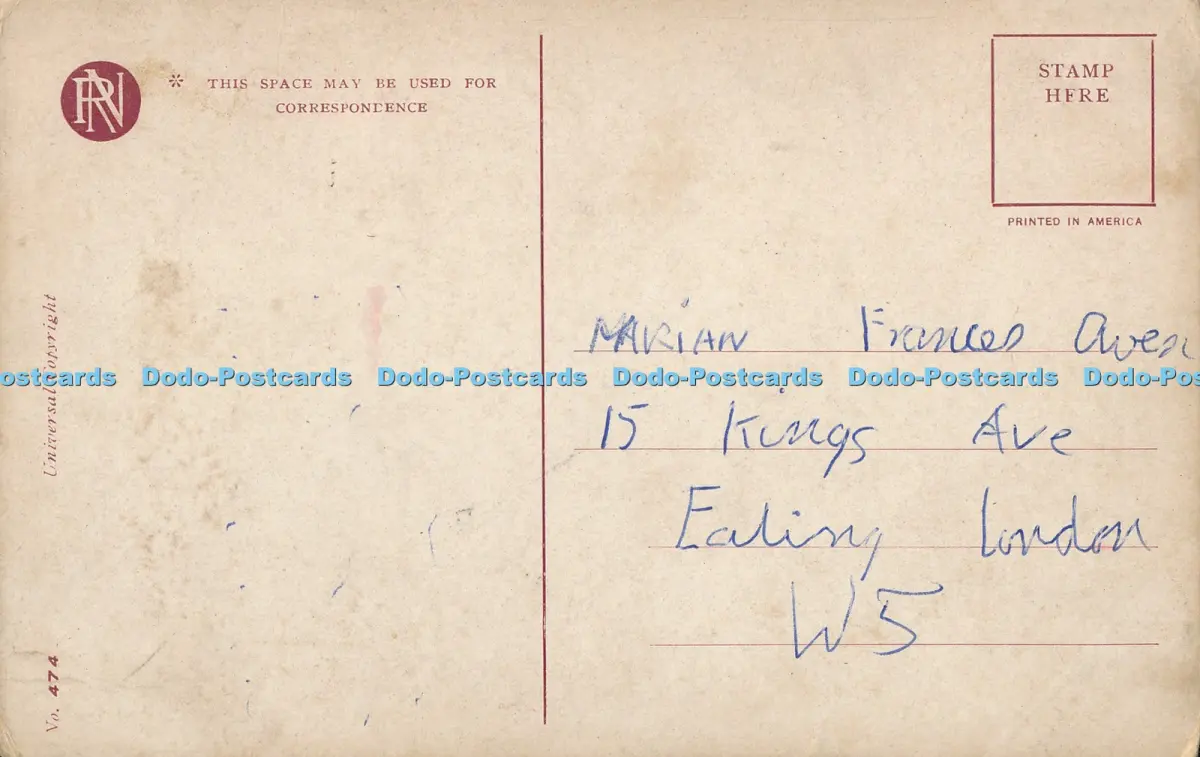 RN
* THIS SPACE MAY BE USED FOR
CORRESPONDENCE
STAMP
HERE
PRINTED IN AMERICA
Universal Copyright
MARIAN Frances Owen
ostcards Dodo-Postcards Dodo-Postcards Dodo-Postcards Dodo-Postcards Dodo-Pos
15 Kings Ave
Ealing London
W5
No. 474